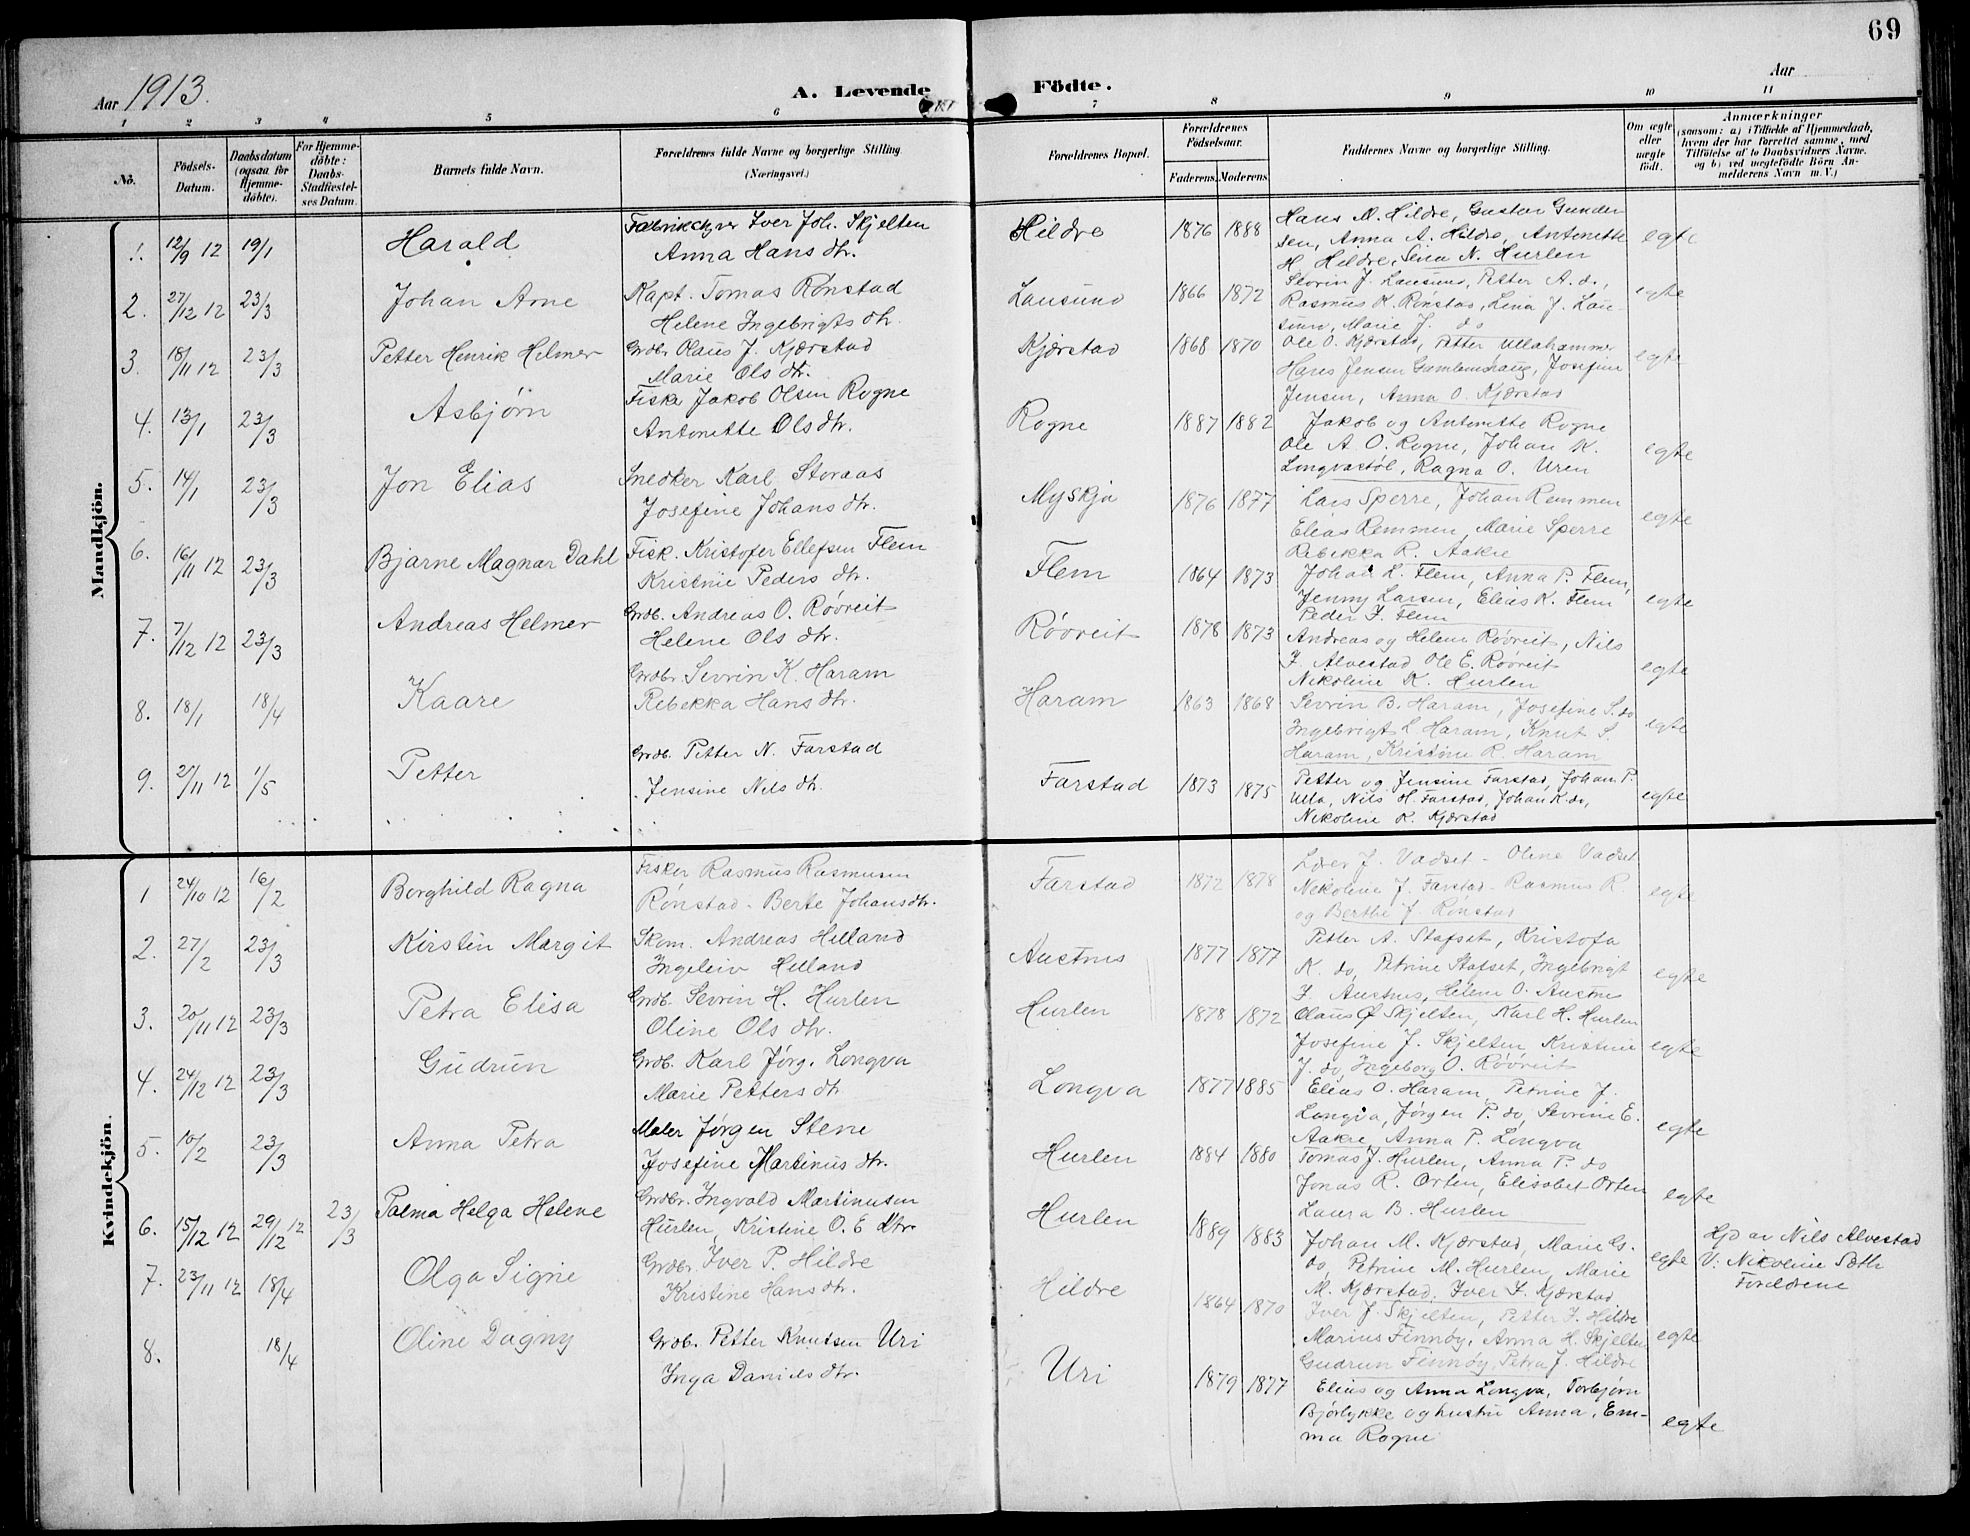 69
Aar 1913.
A. Levende Födte.
Aar
1 2 3 4 5 6 7 8 9 10 11
No.
Födsels-Datum.
Daabsdatum (ogsaa for Hjemmedöbte).
For Hjemmedöbte: Daabs-Stadfæstelses Datum.
Barnets fulde Navn.
Forældrenes fulde Navne og borgerlige Stilling (Næringsvei.)
Forældrenes Bopæl.
Forældrenes Födselsaar.
Faderens. Moderens.
Faddernes Navne og borgerlige Stilling.
Om ægte eller uægte födt.
Anmærkninger
(saasom: a) i Tilfælde af Hjemmedaab, hvem der har forrettet samme, med Tilföielse af to Daabsvidners Navne, og b) ved uægtefödte Börn Anmelderens Navn m. V.)
Mandkjön.
1. 12/9 12 19/1 Harald
Iver Joh. Skjelten
Anna Hans dtr.
Hildre 1876 1888
Hans M. Hildre, Gustav Gunder
sen, Anna A. Hildre, Antonette
H. Hildre, Sina N. Hurlen
egte
2. 27/12 12 23/3 Johan Arne
Kapt. Tomas Rønstad
Helene Ingebrigts dtr.
Lausund 1866 1872
Sevrin J. Lausund, Petter A. do,
Rasmus K. Rønstad, Lina J. Lau-
sund, Marie J. do
egte
3. 18/11 12 23/3 Petter Henrik Helmer
Grdbr. Olaus J. Kjærstad
Marie Ols dtr.
Kjærstad 1868 1870
Ole O. Kjærstad, Petter Ullahammer
Hans Jensen Gamlemshaug, Josefine
Jensen, Anna O. Kjærstad
egte
4. 13/1 23/3 Asbjørn
Fisker Jakob Olsen Rogne
Antonette Ols dtr.
Rogne 1887 1882
Jakob og Antonette Rogne
Ole A. O. Rogne, Johan K.
Longvastøl, Ragna O. Uren
egte
5. 14/1 23/3 Jon Elias
Snedker Karl Storaas
Josefine Johans dtr.
Myskja 1876 1877
Lars Sperre, Johan Remmen
Elias Remmen, Marie Sperre
Rebekka R. Aakre
egte
6. 16/11 12 23/3 Bjarne Magnar Dahl
Fisk. Kristofer Ellefsen Flem
Kristine Peders dtr.
Flem 1864 1873
Johan L. Flem, Anna P. Flem,
Jenny Larsen, Elias K. Flem
Peder J. Flem
egte
7. 7/12 12 23/3 Andreas Helmer
Grdb. Andreas O. Røvreit
Helene Ols dtr.
Røvreit 1878 1873
Andreas og Helene Røvreit, Nils
J. Alvestad Ole E. Røvreit
Nikoline K. Hurlen
egte
8. 18/1 18/4 Kaare
Grdbr. Sevrin K. Haram
Rebekka Hans dtr.
Haram 1863 1868
Sevrin B. Haram, Josefine S. do
Ingebrigt L. Haram, Knut S.
Haram, Kristine R. Haram
egte
9. 1/5 Petter
Grdb. Petter N. Farstad
Jensine Nils dtr.
Farstad 1873 1875
Petter og Jensine Farstad, Johan P.
Ulla, Nils H. Farstad, Johan K. do,
Nikoline K. Kjærstad
egte
Kvindekjön.
1 24/10 12 16/2 Borghild Ragna
Fisker Rasmus Rasmussen
Rønstad - Berte Johansdtr.
Farstad 1872 1878
J. Vadset - Oline Vadset
Nikoline J. Farstad - Rasmus R.
og Berthe J. Rønstad
egte
2. 27/2 23/3 Kirstin Margit
Skom. Andreas Helland
Ingeleiv Helland
Austnes 1877 1877
Petter A. Stafset, Kristofa
K. do, Petrine Stafset, Ingebrigt
J. Austnes, Helene O. Austnes
egte
3. 20/11 12 23/3 Petra Elisa
Grdb. Sevrin H. Hurlen
Oline Ols dtr.
Hurlen 1878 1872
Olaus Ø Skjelten, Karl H. Hurlen
Josefine J. Skjelten Kristine
J. do, Ingeborg O. Røvreit
egte
4. 24/12 12 23/3 Gudrun
Grdb. Karl Jørg. Longva
Marie Petters dtr
Longva 1877 1885
Elias O. Haram, Petrine J.
Longva, Jørgen P. do, Sevrine E.
Aakre, Anna P. Longva
egte
5. 10/2 23/3 Anna Petra
Maler Jørgen Stene
Josefine Martinus dtr.
Hurlen 1884 1880
Tomas J. Hurlen, Anna P. do
Jonas R. Orten, Elisabet Orten
Laura B. Hurlen
egte
6. 15/12 12 29/12 12 23/3 Palma Helga Helene
Grdbr. Ingvald Martinusen
Hurlen, Kristine O. E dtr.
Hurlen 1889 1883
Johan M. Kjærstad, Marie G.
do, Petrine M. Hurlen, Marie
M. Kjærstad, Iver J. Kjærstad
egte
Hjd av Nils Alvestad
V: Nikoline Sæth
Foreldrene
7. 23/11 12 18/4 Olga Signe
Grdbr. Iver P. Hildre
Kristine Hans dtr.
Hildre 1864 1870
Iver J. Skjelten, Petter J. Hildre
Marius Finnøy, Anna H. Skjelten
Gudrun Finnøy, Petra J. Hildre
egte
8. 18/4 Oline Dagny
Grdb. Petter Knutsen Uri
Inga Daniels dtr.
Uri 1879 1877
Elias og Anna Longva, Torbjørn
Bjørlykke og hustru Anna, Em-
ma Rogne
egte